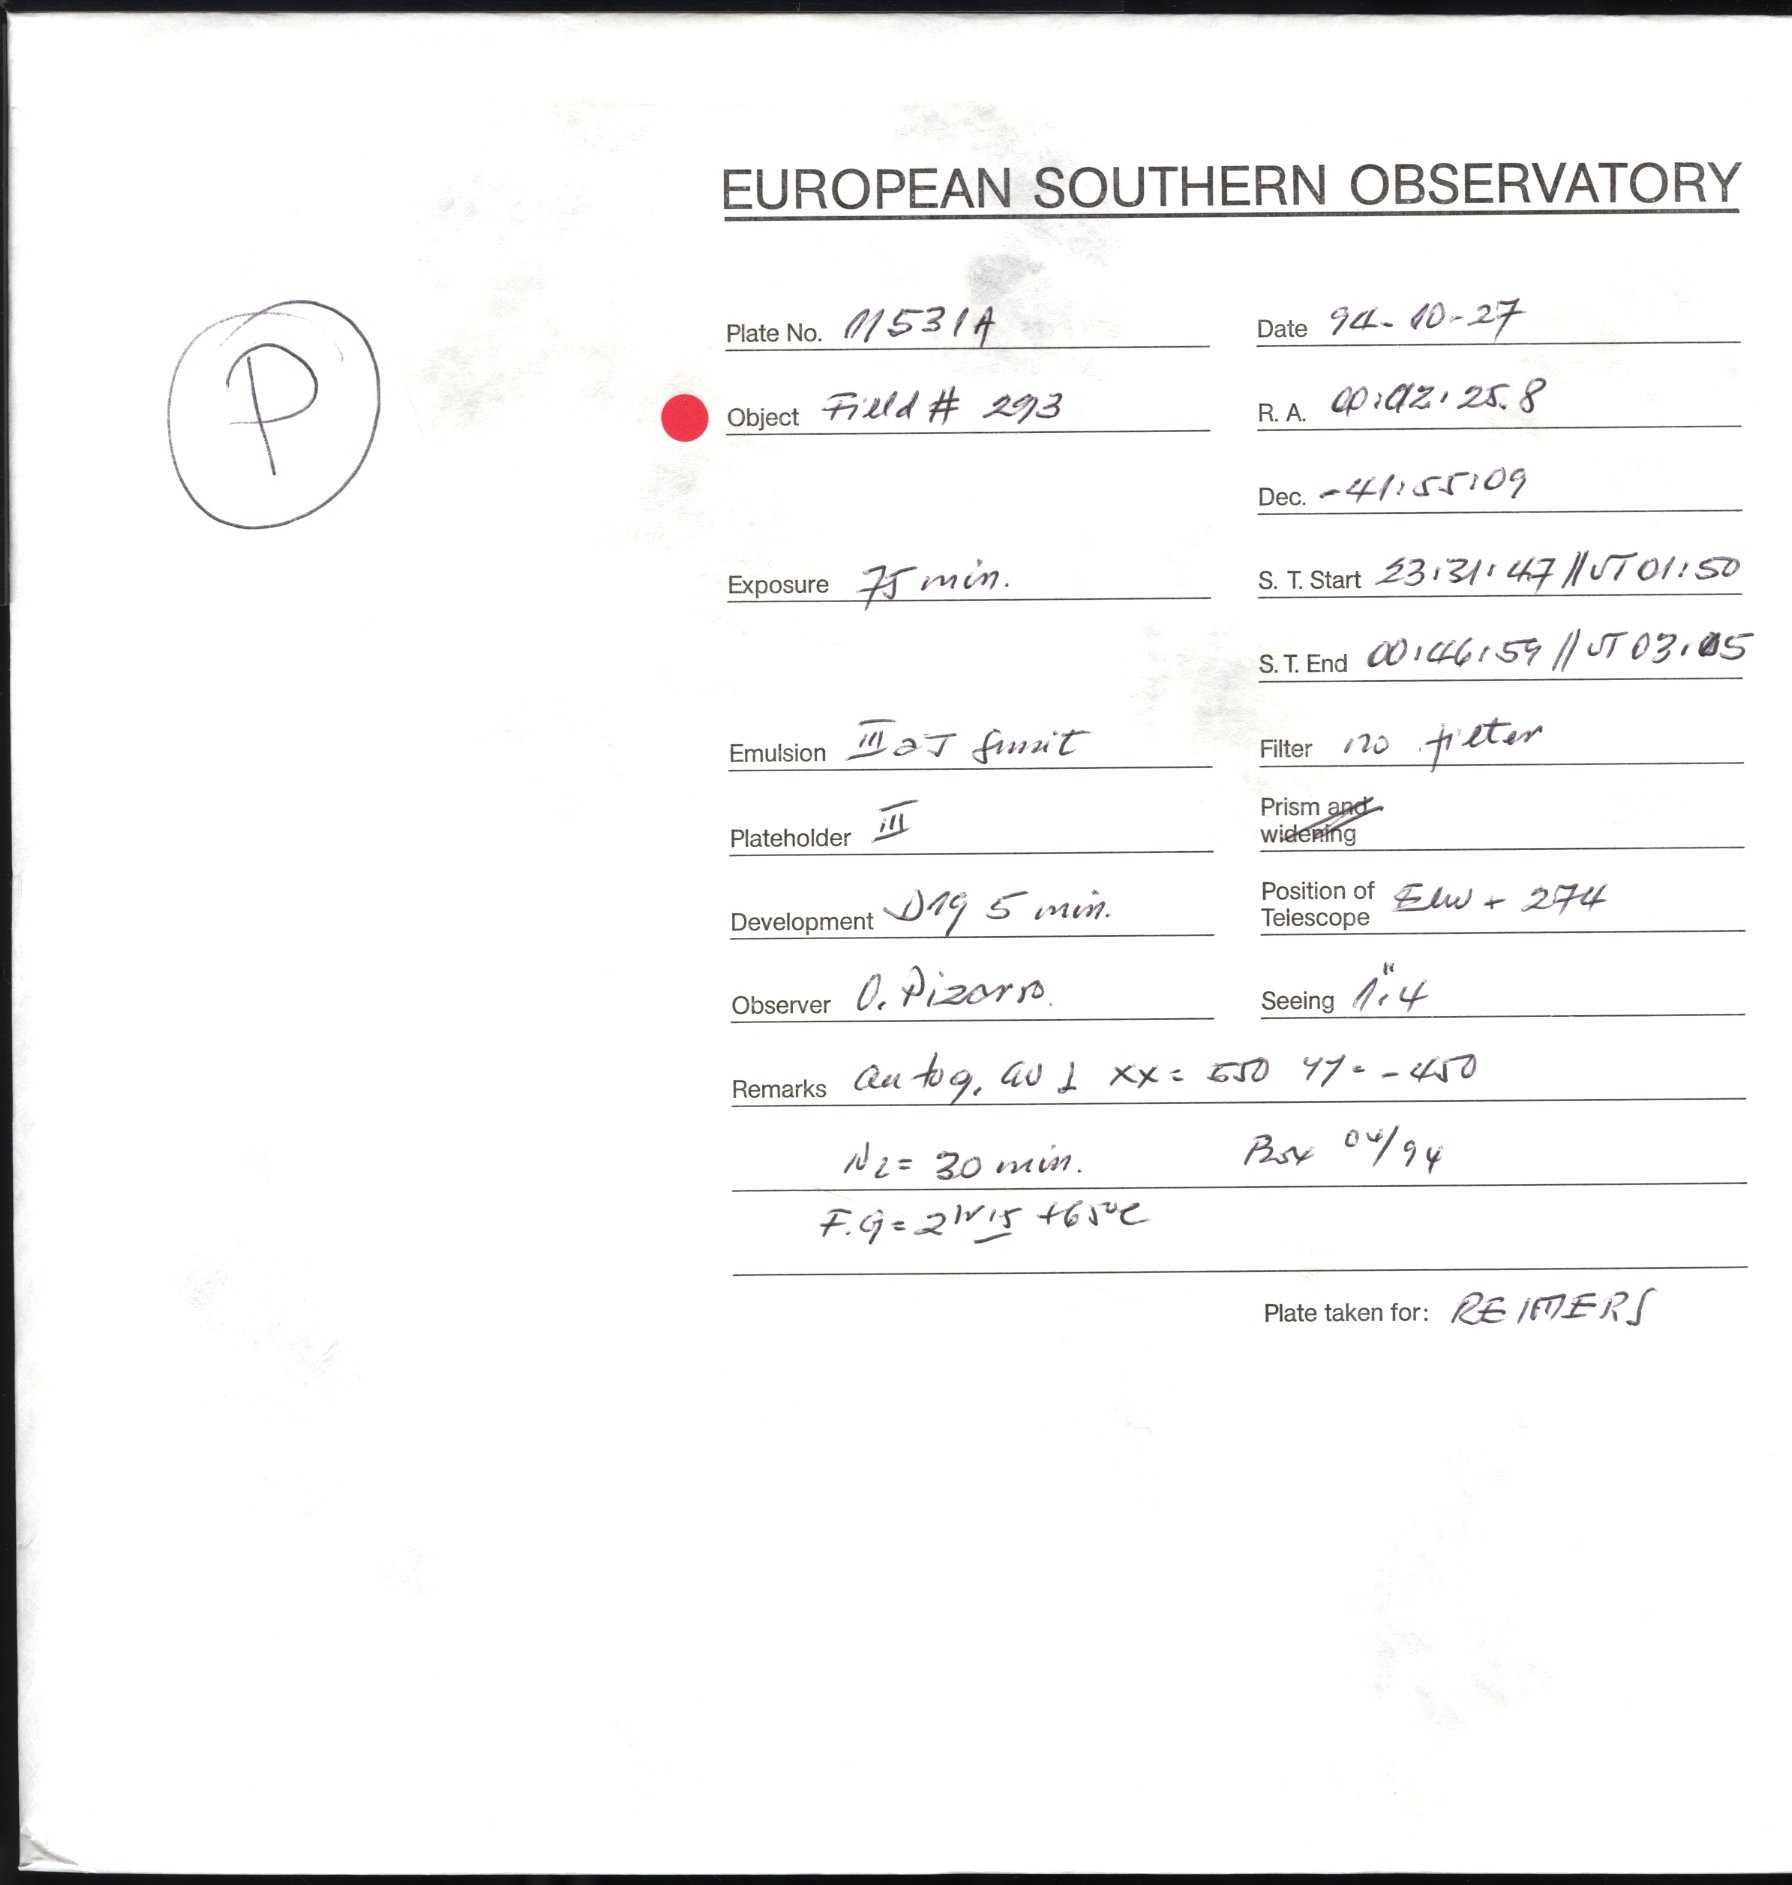 EUROPEAN SOUTHERN OBSERVATORY
P
Plate No. 11531A Date 94-10-27
Object Field # 293 R. A. 00:02:25.8
Dec. -41:55:09
Exposure 75 min. S. T. Start 23:31:47 // UT 01:50
S. T. End 00:46:59 // UT 03:05
Emulsion III aJ Filter no filter
Plateholder III Prism and widening
Development D19 5 min. Position of Telescope + 274
Observer O. Pizarro. Seeing 1".4
Remarks autog. xx = 550 yy = -450
N2 = 30 min. Box 04/94
F.G = +65°C
Plate taken for: REIMERS